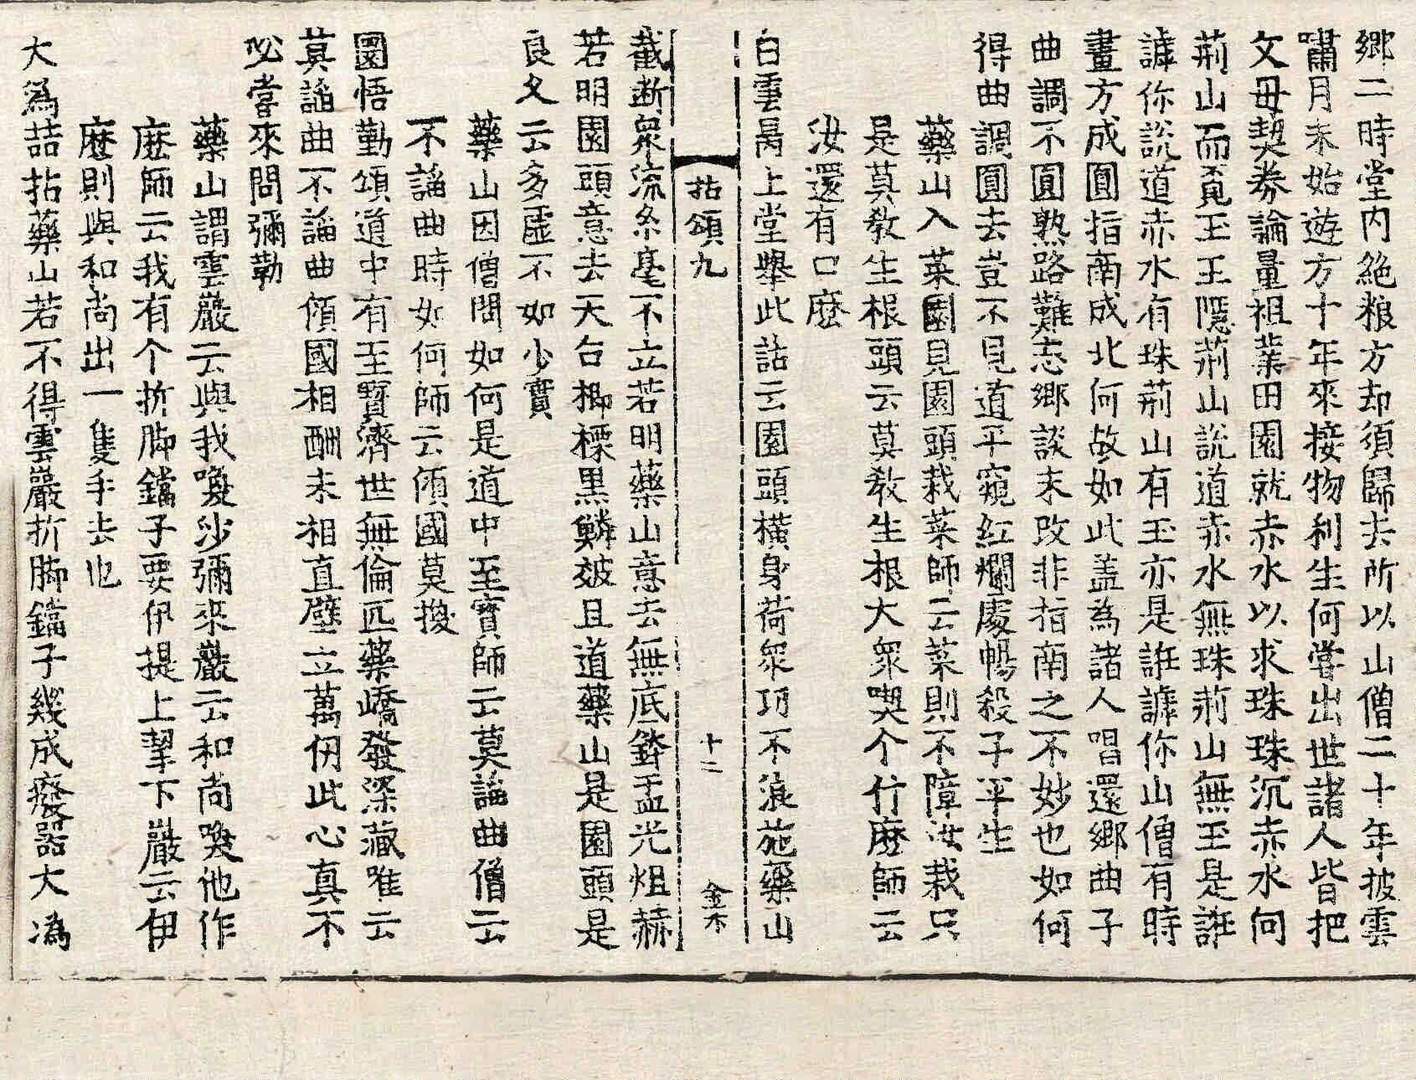 鄉二時堂內絕粮方却須歸去所以山僧二十年披雲
嘯月未始遊方十年來接物利生何嘗出世諸人皆把
文母契券論量祖業田園就赤水以求珠珠沉赤水向
荊山而覓玉玉隱荊山說道赤水無珠荊山無玉是誑
謼你說道赤水有珠荊山有玉亦是誑謼你山僧有時
畫方成圓指南成北何故如此盖為諸人唱還鄉曲子
曲調不圓熟路難忘鄉談未改非指南之不妙也如何
得曲調圓去豈不見道平窺紅爛處暢殺子平生
藥山入菜園見園頭栽菜師云菜則不障汝栽只
是莫教生根頭云莫教生根大衆喫个什麽師云
汝還有口麽
白雲昺上堂舉此話云園頭橫身荷衆功不浪施藥山
拈頌九 十二 金木
截断衆流糸毫不立若明藥山意去無底鉢盂光烜赫
若明園頭意去天台楖㯶黒鱗皴且道藥山是園頭是
良久云多虛不如少實
藥山因僧問如何是道中至寶師云莫謟曲僧云
不謟曲時如何師云傾國莫換
圜悟勤頌道中有至寶濟世無倫匹藥嶠發深藏唯云
莫謟曲不謟曲傾國相酬未相直壁立萬仞此心真不
必嘗來問彌勒
藥山謂雲巖云與我喚沙彌來巖云和尚喚他作
麽師云我有个折脚鐺子要伊提上挈下巖云伊
麽則與和尚出一隻手去也
大為喆拈藥山若不得雲巖折脚鐺子幾成廢器大溈